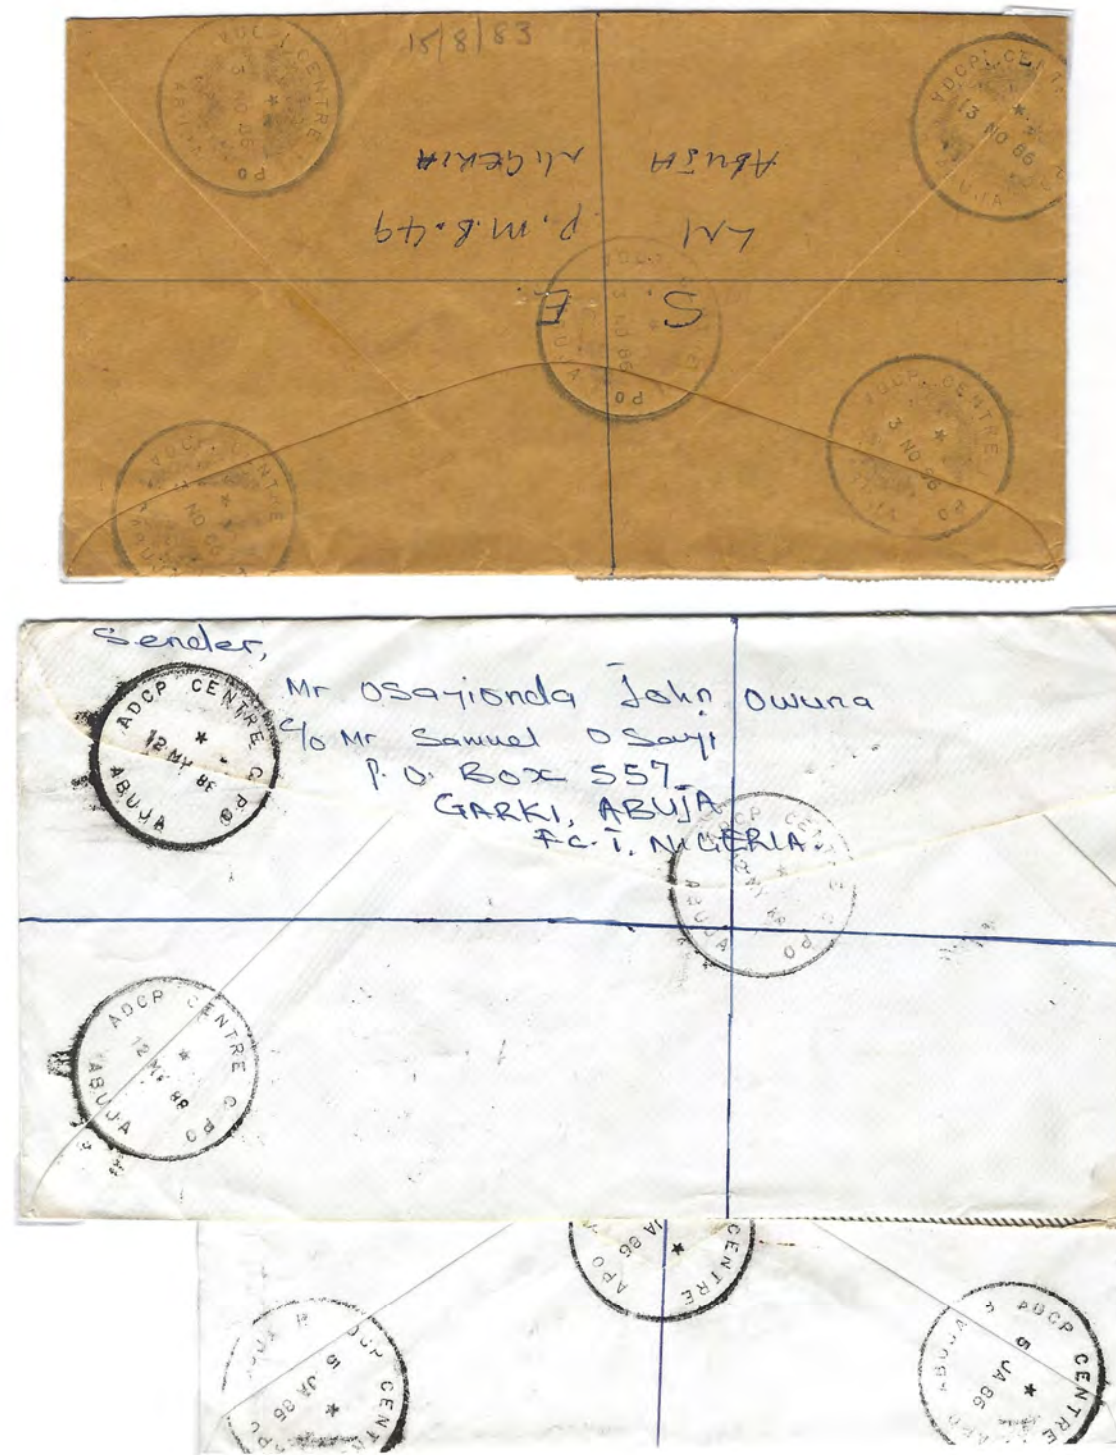 15/8/83
ADCP. CENTRE
3 NO 86
PO
ADCP. CENTRE
13 NO 86
ABUJA
S. E.
LN1 P.M.B.49
ABUJA NIGERIA
3 NO 86
PO
ADCP. CENTRE
NO
ABUJA
ADCP. CENTRE
3 NO 86
PO
Sender,
Mr Osayionda John Owuna
c/o Mr Samuel Osayi
P.O. Box 557
GARKI, ABUJA
F.C.T, NIGERIA.
ADCP CENTRE GPO
12 MY 88
ABUJA
ADCP CENTRE G PO
12 MY 88
ABUJA
ADCP CENTRE G PO
12 MY 88
ABUJA
JA 86
CENTRE
APO
ADCP CENTRE
5 JA 86
APO
ADCP CENTRE
5 JA 86
APO
ABUJA 3